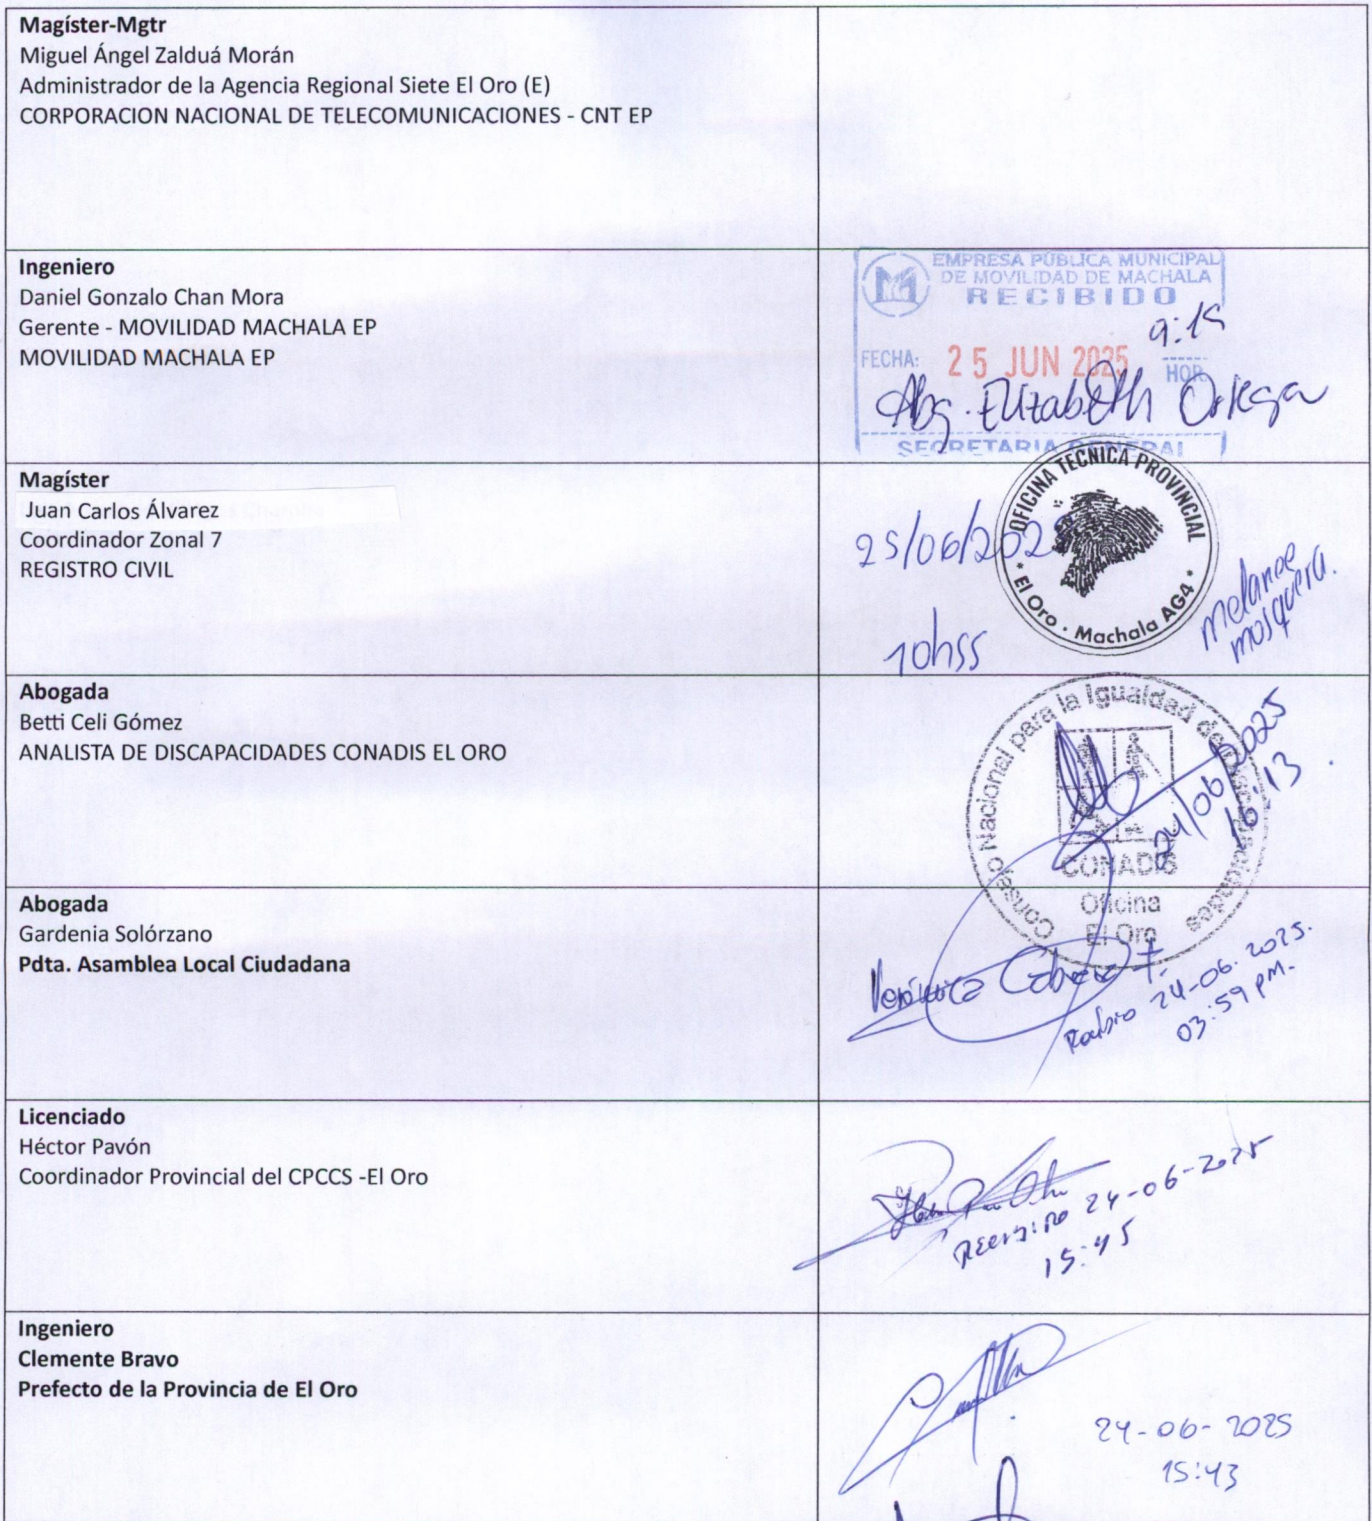 Magíster-Mgtr
Miguel Ángel Zalduá Morán
Administrador de la Agencia Regional Siete El Oro (E)
CORPORACION NACIONAL DE TELECOMUNICACIONES - CNT EP
Ingeniero
Daniel Gonzalo Chan Mora
Gerente - MOVILIDAD MACHALA EP
MOVILIDAD MACHALA EP
EMPRESA PÚBLICA MUNICIPAL
DE MOVILIDAD DE MACHALA
RECIBIDO
9:15
FECHA: 25 JUN 2025 HOR
Abg. Elizabeth Ortega
SECRETARIA GENERAL
Magíster
Juan Carlos Álvarez
Coordinador Zonal 7
REGISTRO CIVIL
OFICINA TECNICA PROVINCIAL
El Oro • Machala AG4
25/06/2025
10h55
melanee
mosquera.
Abogada
Betti Celi Gómez
ANALISTA DE DISCAPACIDADES CONADIS EL ORO
Consejo Nacional para la Igualdad de Discapacidades
CONADIS
Oficina
El Oro
24/06/2025
16:13
Abogada
Gardenia Solórzano
Pdta. Asamblea Local Ciudadana
Verónica Cabrera
24-06-2025.
03:59 PM.
Licenciado
Héctor Pavón
Coordinador Provincial del CPCCS -El Oro
24-06-2025
15:45
Ingeniero
Clemente Bravo
Prefecto de la Provincia de El Oro
24-06-2025
15:43